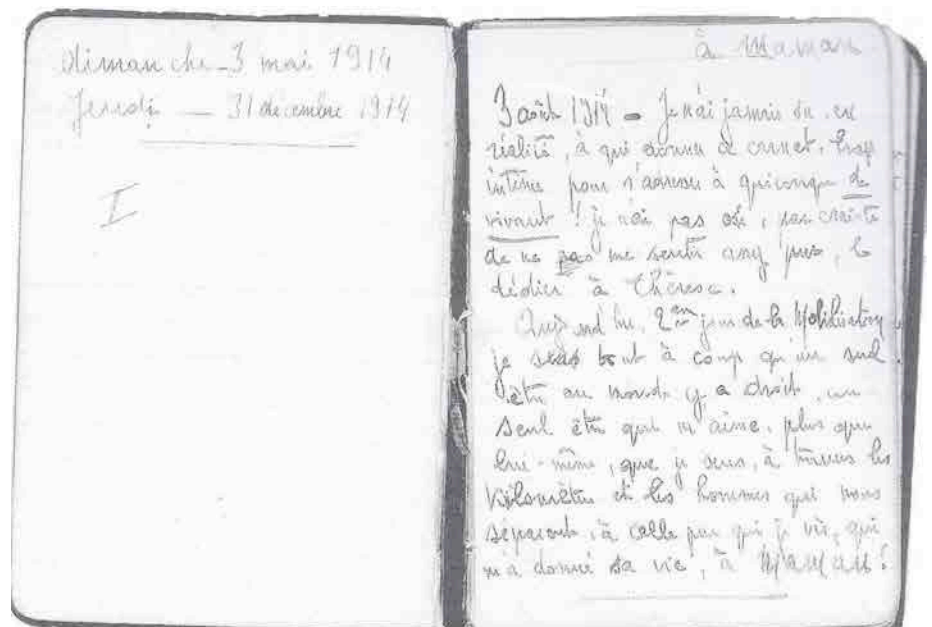 dimanche - 3 mai 1914
Jeudi — 31 decembre 1914
I
à Maman
3 août 1914 - Je n'ai jamais su, en
réalité, à qui donner ce carnet. trop
intime pour s'adresser à quiconque de
vivant ! je n'ai pas osé, par crainte
de ne pas me sentir assez pur, le
dédier à Thérèse.
Aujourd'hui, 2em jour de la Mobilisation
je sens tout à coup qu'un seul
être au monde y a droit, un
seul être qui m'aime, plus que
lui-même, que je sens, à travers les
kilomètres et les hommes qui nous
séparent, à celle par qui je vis, qui
m'a donné sa vie, à MAMAN !